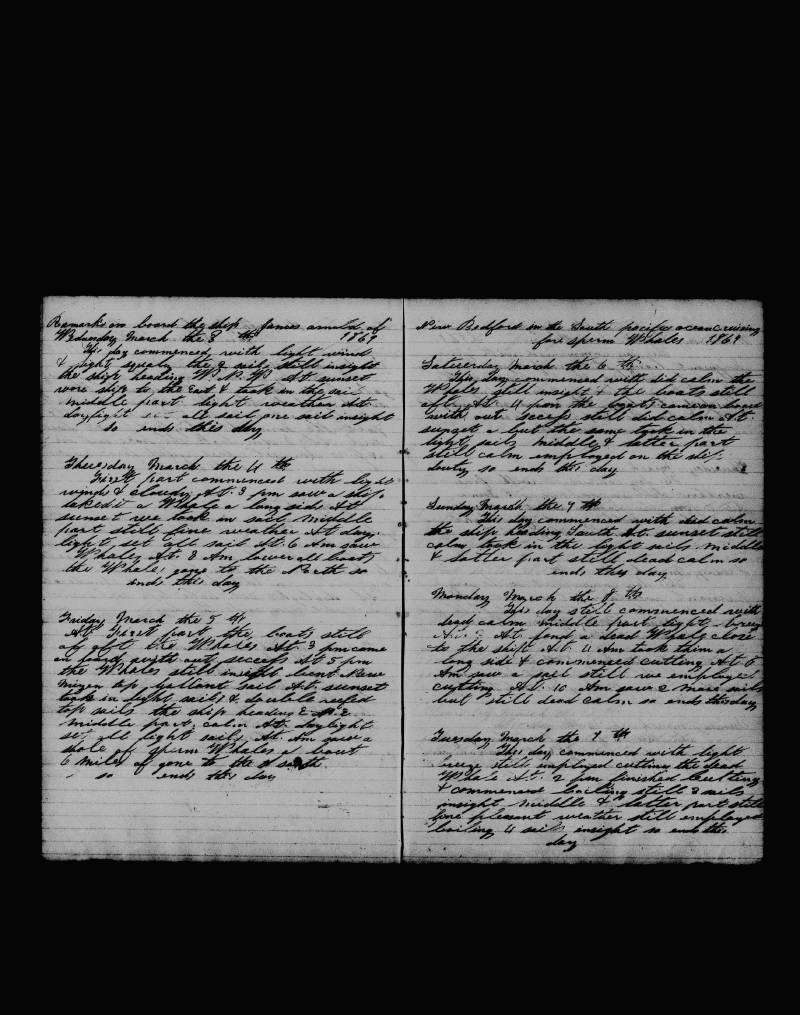 Remarks on board the ship James arnold of
Wedunday March the 3 th 1869
This day commenced with light wind
& light squaly the 2 sails still insight
the ship heading N W At sunset
wore ship to the East & took in the sail
middle part light weather At
daylight set all sail one sail insight
so ends this day
Thuesday March the 4 th
First part commenced with light
winds & cloudy At 3 pm saw a ship
taked in a Whale a long side At
sunset we took in sail middle
part still fine weather At day
light set all sail At 6 Am saw
Whales At 8 Am lower all boats
the Whales gone to the North so
ends this day
Friday March the 5 th
At First part the boats still
of aft the Whales At 3 pm come
on board with out seccess At 5 pm
the Whales still insight bent New
mizen top gallant sail At sunset
took in light sails & double reefed
top sails the ship heading E
middle part calm At daylight
set all light sails At Am saw a
shole of spirm Whales a bout
6 miles of gone to the south
so ends this day
New Bedford in the South pacific ocean cruising
for sperm Whales 1869
Saturday March the 6 th
This day commenced with ded calm the
Whales still insight & the boats still
aft At 4 pm the boats came on board
with out secess still ded calm At
sunset a but the same took in the
light sails middle & latter part
still calm employed on the ship
douty so ends this day
Sunday March the 7 th
This day commenced with ded calm
the ship heading South At sunset still
calm took in the light sails middle
& latter part still dead calm so
ends this day
Monday March the 8 th
This day still commenced with
dead calm middle part light breeze
At fond a dead Whale close
to the ship At 4 Am took him a
long side & commenced cutting At 6
Am saw a sail still we employed
cutting At 10 Am saw 2 more sails
but still dead calm so ends this day
Tuesday March the 9 th
This day commenced with light
breeze still employed cutting the dead
Whale At 2 pm finished cutting
& commenced boiling still 3 sails
insight middle & latter part still
fine pleasant weather still employed
boiling 4 sails insight so ends this
day